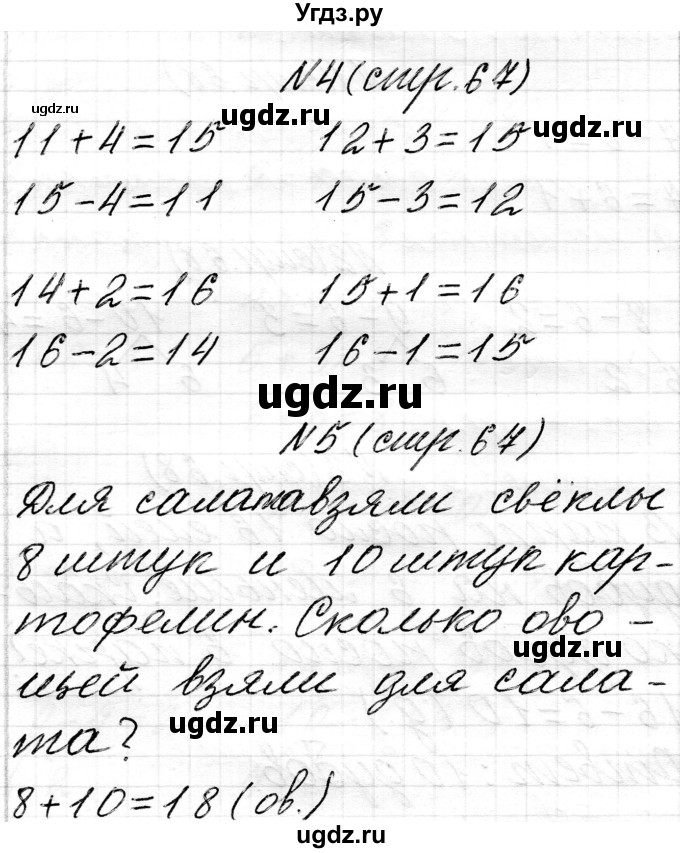 Угдз.ру
№4 (стр. 67)
ugdz.ru ugdz.ru
11+4=15 12+3=15 ugdz.ru
15-4=11 15-3=12
14+2=16 15+1=16
16-2=14 16-1=15
ugdz.ru
№5 (стр. 67)
Для салата взяли свёклы
8 штук и 10 штук кар-
тофелин. Сколько ово-
ugdz.ru
щей взяли для сала-
ugdz.ru
та?
8+10=18 (ов.)
ugdz.ru